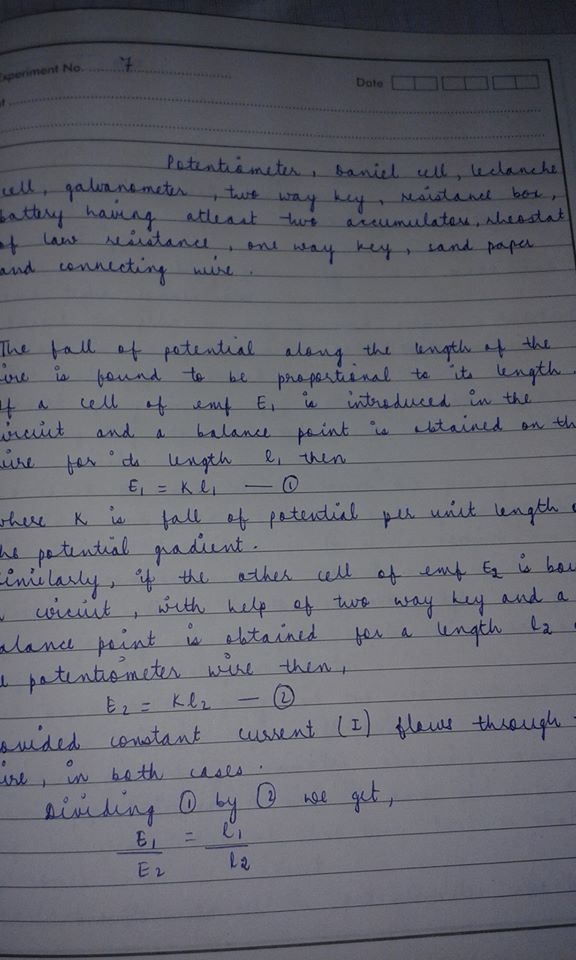 Experiment No. 7
Date
Potentiometer, Daniel cell, leclanche
cell, galvanometer, two way key, resistance box,
battery having atleast two accumulators, rheostat
of low resistance, one way key, sand paper
and connecting wire.
The fall of potential along the length of the
wire is found to be proportional to its length.
If a cell of emf E₁ is introduced in the
circuit and a balance point is obtained on the
wire for its length l₁ then
E₁ = Kl₁ — ①
where K is fall of potential per unit length
the potential gradient.
Similarly, if the other cell of emf E₂ is
circuit, with help of two way key and a
balance point is obtained for a length l₂
potentiometer wire then,
E₂ = Kl₂ — ②
provided constant current (I) flows through
wire, in both cases.
Dividing ① by ② we get,
E₁ = l₁
E₂ l₂